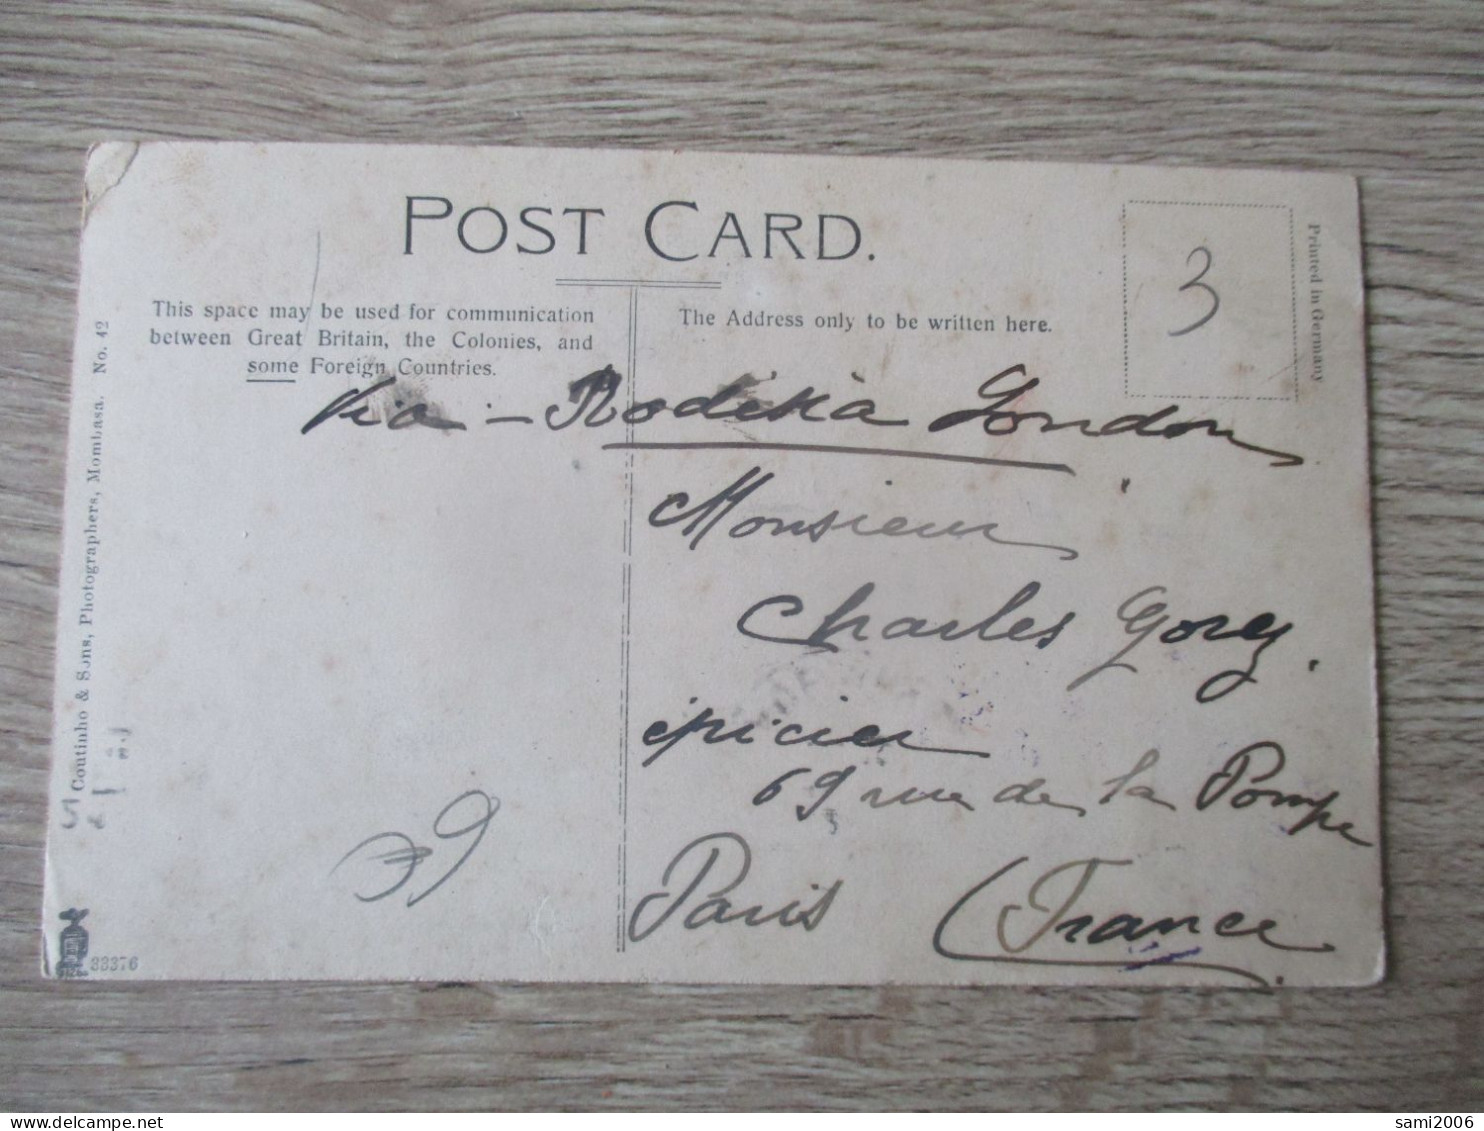 POST CARD.
This space may be used for communication
between Great Britain, the Colonies, and
some Foreign Countries.
The Address only to be written here.
3
Printed in Germany
Via - Rodésia London
Monsieur
Charles Gorez.
épicier
69 rue de la Pompe
Paris (France
Coutinho & Sons, Photographers, Mombasa. No. 42
33376
sami2006